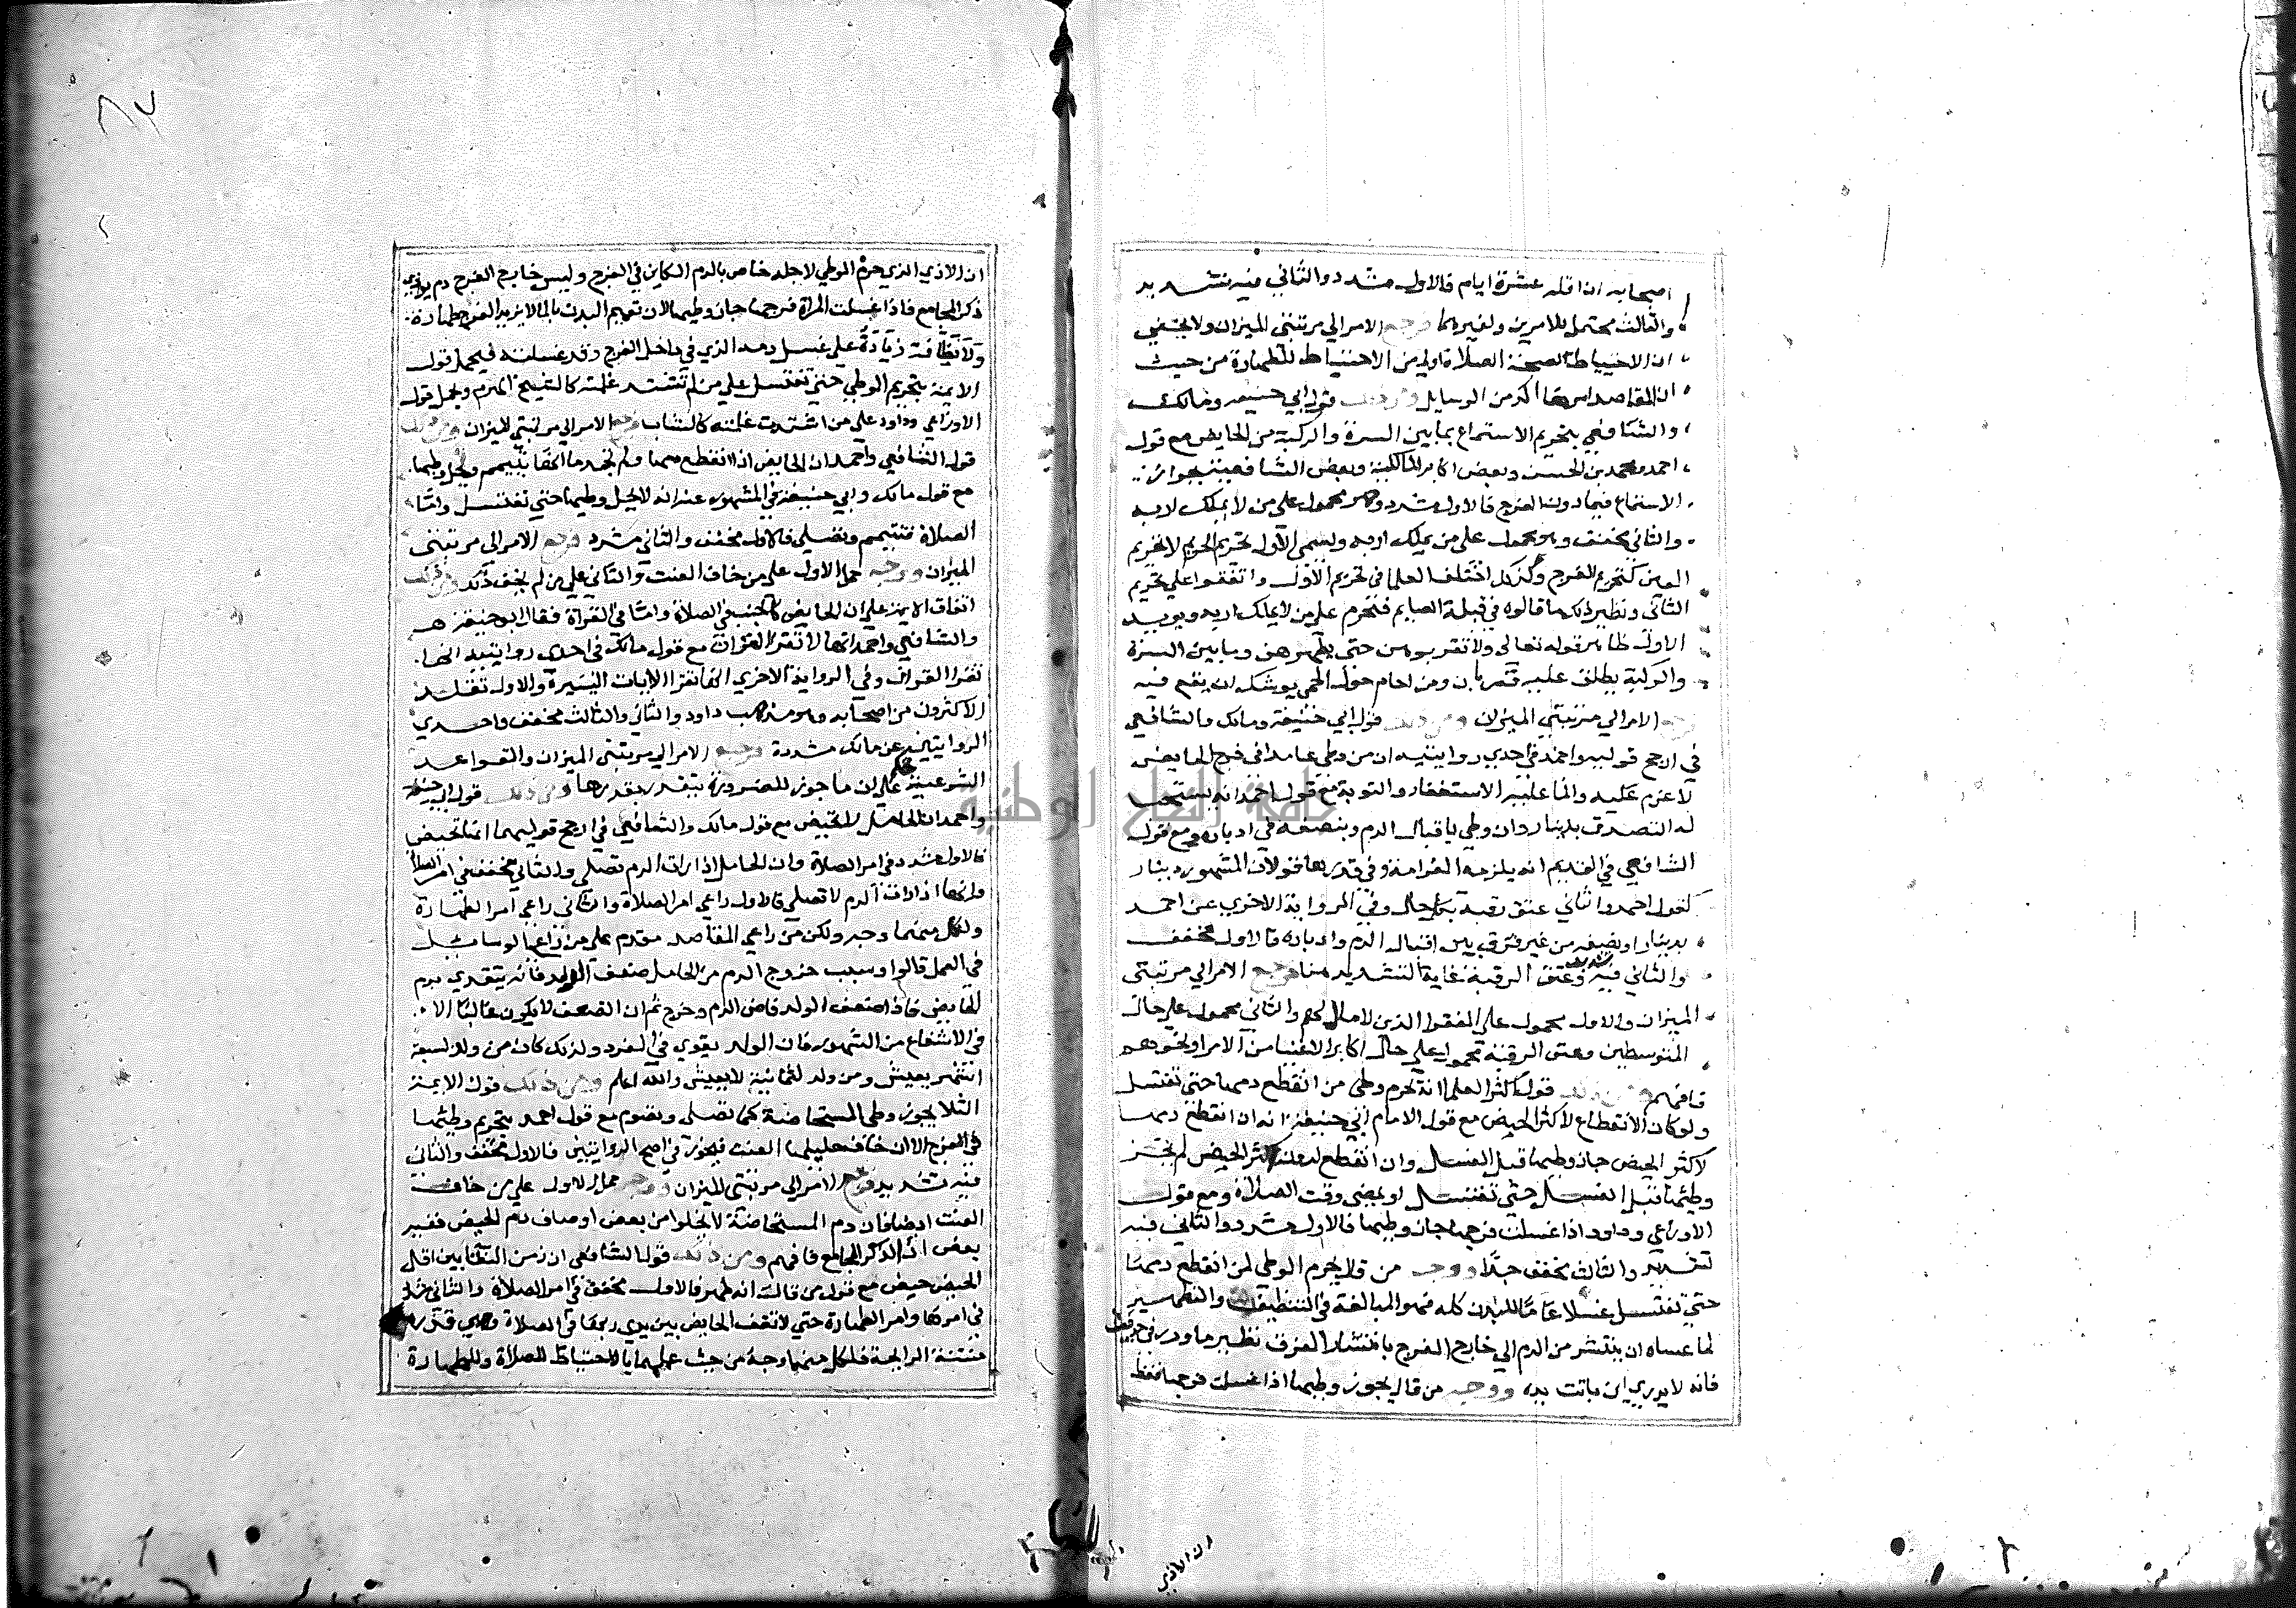 اصحابه ان اقله عشرة ايام فالاول مشدد والثاني فيه تشديد
والثالث محتمل للامرين ولغيرهما فرجع الامر الي مرتبتي الميزان ولا يخفي
ان الاحتياط لصحة الصلاة اولي من الاحتياط للطهارة من حيث
ان المقاصد امرها اكد من الوسايل ومن ذلك قول ابي حنيفه ومالك
والشافعي بتحريم الاستمتاع بما بين السرة والركبة من الحايض مع قول
احمد ومحمد بن الحسن وبعض اكابر المالكية وبعض الشافعية بجواز
الاستمتاع فيما دون الفرج فالاول مشدد وهو محمول علي من لا يملك اربه
والثاني مخفف وهو محمول علي من يملك اربه ويسمي الاول تحريم الحريم لا تحريم
العين كتحريم الفرج وكذلك اختلف العلما في تحريم الاول واتفقوا علي تحريم
الثاني ونظير ذلك ما قالوه في قبلة الصايم فتحرم علي من لا يملك اربه ويويد
الاول ظاهر قوله تعالي ولا تقربوهن حتي يطهرن وما بين السرة
والركبة يطلق عليه قربان ومن حام حول الحمي يوشك ان يقع فيه
فرجع الامر الي مرتبتي الميزان ومن ذلك قول ابي حنيفة ومالك والشافعي
في ارجح قوليه واحمد في احدي روايتيه ان من وطي عامدا في فرج الحايض
لا غرم عليه وانما عليه الاستغفار والتوبة مع قول احمد انه يستحب
له التصدق بدينار ان وطي في اقبال الدم وبنصفه في ادباره ومع قول
الشافعي في القديم انه يلزمه الغرامة وفي قدرها قولان المشهور دينار
كقول احمد والثاني عتق رقبة بكل حال وفي الرواية الاخري عن احمد
بدينار او نصفه من غير فرق بين اقبال الدم وادباره فالاول مخفف
والثاني فيه تشديد وعتق الرقبة غاية التشديد هنا فرجع الامر الي مرتبتي
الميزان والاول محمول علي الفقرا الذين لا مال لهم والثاني محمول علي حال
المتوسطين وعتق الرقبة محمول علي حال اكابر الاغنيا من الامرا ونحوهم
فافهم ومن ذلك قول اكثر العلما انه يحرم وطي من انقطع دمها حتي تغتسل
ولو كان الانقطاع لاكثر الحيض مع قول الامام ابي حنيفة انه ان انقطع دمها
لاكثر الحيض جاز وطيها قبل الغسل وان انقطع لدون اكثر الحيض لم يجز
وطيها قبل الغسل حتي تغتسل او يمضي وقت الصلاة ومع قول
الاوزاعي وداود اذا غسلت فرجها جاز وطيها فالاول مشدد والثاني فيه
تشديد والثالث مخفف جدا ووجه من قال يحرم الوطي لمن انقطع دمها
حتي تغتسل غسلا عاما للبدن كله فهو المبالغة في التنظيف والتطهير
لما عساه ان ينتشر من الدم الي خارج الفرج بانتشار العرق نظير ما ورد في
فانه لا يدري اين باتت يده ووجه من قال يجوز وطيها اذا غسلت فرجها فقط
ان الاذي
ان الاذي الذي حرم الوطي لاجله خاص بالدم الكاين في الفرج وليس خارج الفرج دم يوذي
ذكر المجامع فاذا غسلت المراة فرجها جاز وطيها لان تعميم البدن بالما لا يزيد الفرج طهارة
ولا نظافة زيادة علي غسل دمه الذي في داخل الفرج وقد غسلته فيحمل قول
الايمة بتحريم الوطي حتي تغتسل علي من لم تشتد غلمته كالشيخ الهرم ويحمل قول
الاوزاعي وداود علي من اشتدت غلمته كالشاب فرجع الامر الي مرتبتي الميزان ومن ذلك
قول الشافعي واحمد ان الحايض اذا انقطع دمها ولم تجد ما انها تتيمم ويحل وطيها
مع قول مالك وابي حنيفة في المشهور عنه انه لا يحل وطيها حتي تغتسل واما
الصلاة فتتيمم وتصلي فالاول مخفف والثاني مشدد فرجع الامر الي مرتبتي
الميزان ووجه حمل الاول علي من خاف العنت والثاني علي من لم يخف ذلك ومن ذلك
اتفاق الايمة علي ان الحايض كالجنب في الصلاة واما في القراة فقال ابو حنيفة
والشافعي واحمد انها لا تقرا القران مع قول مالك في احدي روايتيه انها
تقرا القران وفي الرواية الاخري انها تقرا الايات اليسيرة والاول نقله
الاكثرون من اصحابه وهو مذهب داود والثاني والثالث مخفف واحدي
الروايتين عن مالك مشددة فرجع الامر الي مرتبتي الميزان والقواعد
الشرعية علي ان ما جوز للضرورة يتقدر بقدرها ومن ذلك قول ابي حنيفة
واحمد ان الحامل لا تحيض مع قول مالك والشافعي في ارجح قوليهما انها تحيض
فالاول مشدد في امر الصلاة وان الحامل اذا رات الدم تصلي والثاني مخفف في امر الصلاة
وانها اذا رات الدم لا تصلي فالاول راعي امر الصلاة والثاني راعي امر الطهارة
ولكل منهما وجه ولكن من راعي المقاصد مقدم علي من راعي الوسايل
في العمل قالوا وسبب خروج الدم من الحامل ضعف الولد فانه يتغذي بدم
الحايض فاذا ضعف الولد فاض الدم وخرج ثم ان الضعف لا يكون غالبا الا
في الاشفاع من الشهور فان الولد يقوي في الفرد ولذلك كان من ولد لسبعة
اشهر يعيش ومن ولد لثمانية لا يعيش والله اعلم ومن ذلك قول الايمة
الثلا يجوز وطي المستحاضة كما تصلي وتصوم مع قول احمد بتحريم وطيها
في الفرج الا ان خاف حليلها العنت فيجوز في اصح الروايتين فالاول مخفف والثاني
فيه تشديد فرجع الامر الي مرتبتي الميزان ووجه حمل الاول علي من خاف
العنت ايضا فان دم المستحاضة لا يخلو من بعض اوصاف دم الحيض ففيه
بعض اذي لذكر المجامع فافهم ومن ذلك قول الشافعي ان زمن النقا بين اقل
الحيض حيض مع قول من قال انه طهر فالاول مخفف في امر الصلاة والثاني مشدد
في امرها وامر الطهارة حتي لا تقف الحايض بين يدي ربها في الصلاة وهي قذرة
منتنة الرايحة فلكل منهما وجه من حيث عملهما بالاحتياط للصلاة وللطهارة